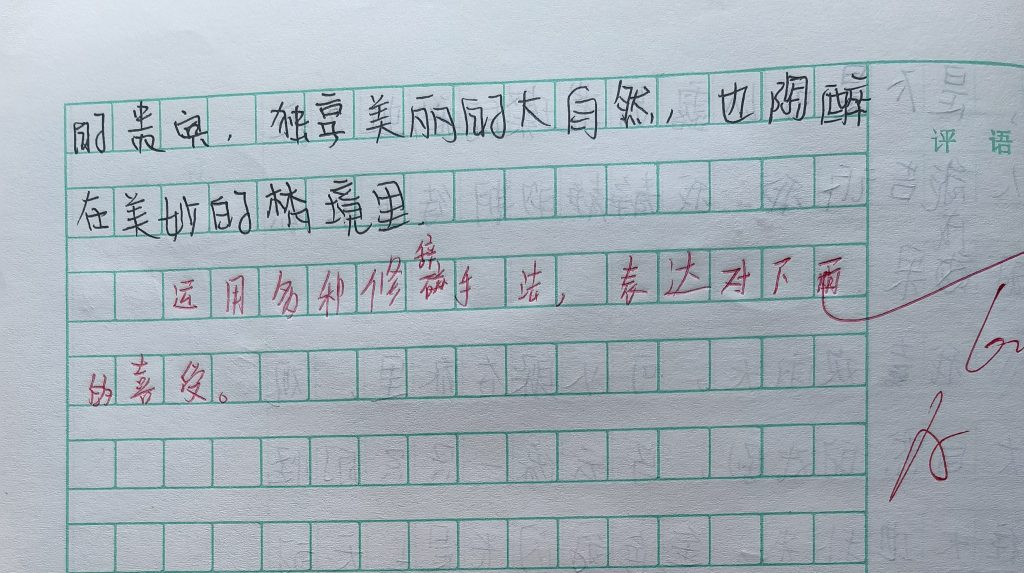 的贵宾，独享美丽的大自然，也陶醉
评 语
在美妙的梦境里.
运用多种修辞手法，表达对下雨
的喜爱。